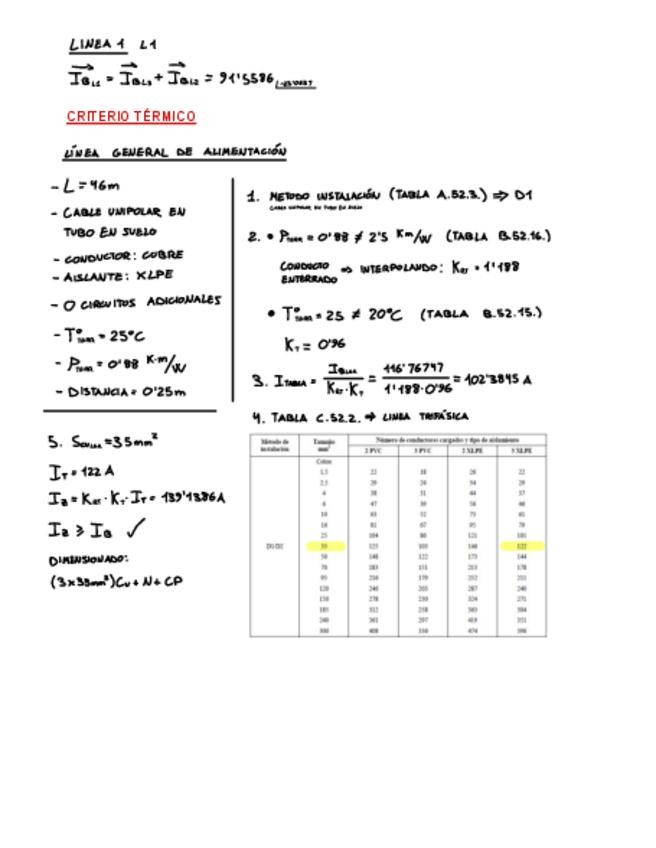 LINEA 1 L1
I_BL1 = I_BL3 + I_BL2 = 91'5586
CRITERIO TÉRMICO
LÍNEA GENERAL DE ALIMENTACIÓN
- L = 46m
- CABLE UNIPOLAR EN
TUBO EN SUELO
- CONDUCTOR: COBRE
- AISLANTE: XLPE
- 0 CIRCUITOS ADICIONALES
- T° = 25°C
- P = 0'88 K·m/W
- DISTANCIA = 0'25m
1. METODO INSTALACIÓN (TABLA A.52.3.) ⇒ D1
CABLE UNIPOLAR EN TUBO EN SUELO
2. • P = 0'88 ≠ 2'5 Km/W (TABLA B.52.16.)
CONDUCTO ENTERRADO ⇒ INTERPOLANDO: K = 1'188
• T° = 25 ≠ 20°C (TABLA B.52.15.)
K_T = 0'96
3. I_TABLA = I / K·K_T = 116'76747 / 1'188·0'96 = 102'3845 A
4. TABLA C.52.2. → LINEA TRIFÁSICA
5. S = 35mm²
I_T = 122 A
I_Z = K·K_T·I_T = 139'1386A
I_Z ≥ I_B ✓
DIMENSIONADO:
(3×35mm²)Cu + N + CP
Método de instalación Tamaño mm² Número de conductores cargados y tipo de aislamiento
2 PVC 3 PVC 2 XLPE 3 XLPE
Cobre
1,5 22 18 26 22
2,5 29 24 34 29
4 38 31 44 37
6 47 39 56 46
10 63 52 73 61
16 81 67 95 79
25 104 86 121 101
D1/D2 35 125 103 146 122
50 148 122 173 144
70 183 151 213 178
95 216 179 252 211
120 246 203 287 240
150 278 230 324 271
185 312 258 363 304
240 361 297 419 351
300 408 336 474 396